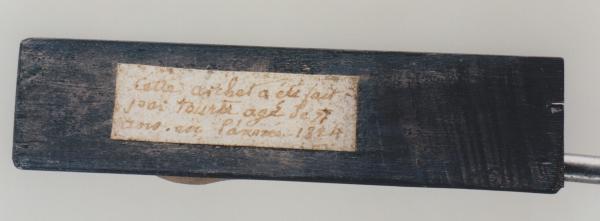 Cette archet a été fait
par Tourte agé de 77
ans. en l'année 1824